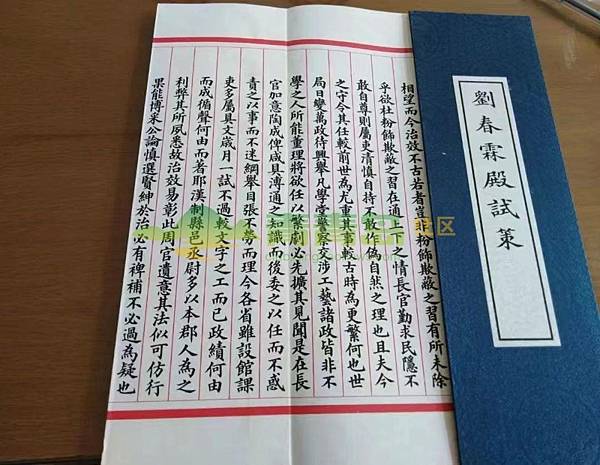 劉春霖殿試策
相望而今治效不古若者豈非粉飾欺蔽之習有所未除
乎欲杜粉飾欺蔽之習在通上下之情長官勤求民隱不
敢自尊則屬吏清慎自持不敢作偽自然之理也且夫今
之守令其任較前世為尤重其事較古時為更繁何也世
局日變萬政待興舉凡學堂警察交涉工藝諸政皆非不
學之人所能董理將欲任以繁劇必先擴其見聞是在長
官加意陶成俾咸具溥通之知識而後委之以任而不惑
責之以事而不迷綱舉目張不勞而理今各省雖設館課
吏多屬具文歲月一試不過較文字之工而已政績何由
而成循聲何由而著耶漢制縣邑丞尉多以本郡人為之
利弊其所夙悉故治效易彰此周官遺意其法似可仿行
果能博采公論慎選賢紳於治必有裨補不必過為疑也